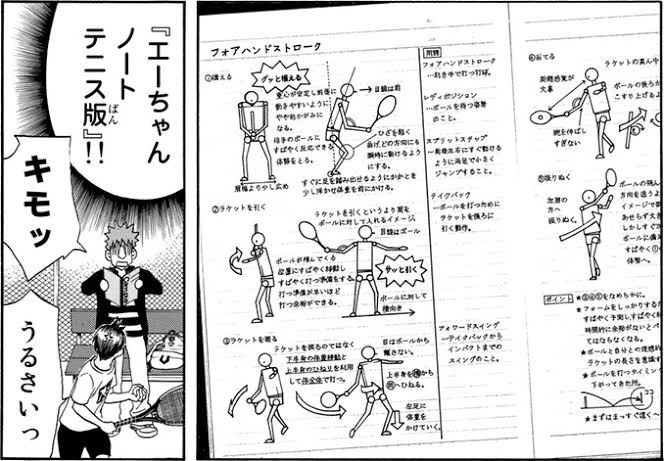 『エーちゃん
ノート
テニス版』!!
ばん
キモッ
うるさいっ
フォアハンドストローク
①構える
グッと構える
重心が安定し前後に
動きやすいように
やや前かがみに
なる。
相手のボールに
すばやく反応できる
体勢をとる。
肩幅より少し広め
目線は前
ひざを軽く
曲げどの方向にも
瞬時に動けるように
する。
すぐに足を踏み出せるようにかかとを
少し浮かせ体重を前にかける。
②ラケットを引く
ラケットを引くというより肩を
ボールに対して入れるイメージ。
目線はボール
ボールが飛んでくる
位置にすばやく移動し
すばやく打つ準備をする。
打つ準備が早いほど
打つ余裕ができる。
サッと引く
ボールに対して
横向き
③ラケットを振る
ラケットを振るのではなく
下半身の体重移動と
上半身のひねりを利用
して体全体で打つ。
目はボールから
離さない。
上半身を後から
前へひねる。
左足に
体重を
かけていく。
用語
フォアハンドストローク
…利き手で打つ打球。
レディポジション
…ボールを待つ姿勢
のこと。
スプリットステップ
…前後左右にすぐ動ける
ように両足で小さく
ジャンプすること。
テイクバック
…ボールを打つために
ラケットを後ろに
引く動作。
フォワードスイング
…テイクバックから
インパクトまでの
スイングのこと。
④当てる
ラケットの真ん中
距離感覚が
大事
ボールの後ろか
こすり上げるよ
腕を伸ばし
すぎない
⑤振りぬく
左肩の
方へ
振りぬく。
ボールの飛ん
方向を追うよ
イメージで振
あせらず大き
しかしすぐ次
ボールに備
すばやく①
体勢へ。
ポイント
★③④⑤をなめらかに。
★フォームをしっかりする
すばやく予測しすばやく
時間的に余裕がないとべ
てはならなくなる。
★ボールと自分との理想的
ラケットの長さを意識す
★ボールを打つタイミング
下がってきた所。
ココ
★まずはまっすぐ速く〜